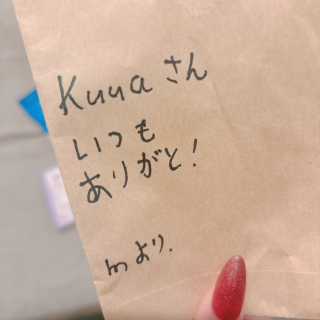 Kuuaさん
いつも
ありがと!
mより.